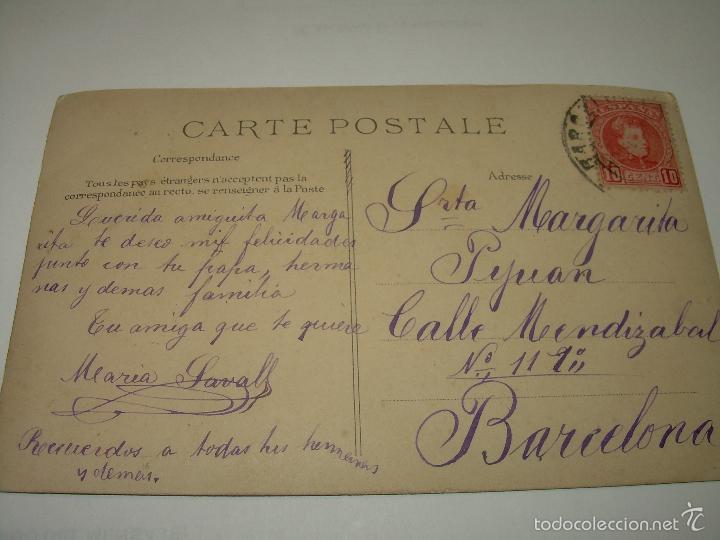 CARTE POSTALE
Correspondance
Tous les pays étrangers n'acceptent pas la
correspondance au recto, se renseigner à la Poste
Querida amiguita Marga
rita te deseo mil felicidades
junto con tu papa, herma
nas y demas familia
Tu amiga que te quiere
Maria Savall
Recuerdos a todas tus hermanas
y demás.
ESPAÑA
10
Adresse
Srta Margarita
Pyuan
Calle Mendizabal
Nº 11
Barcelona
todocoleccion.net